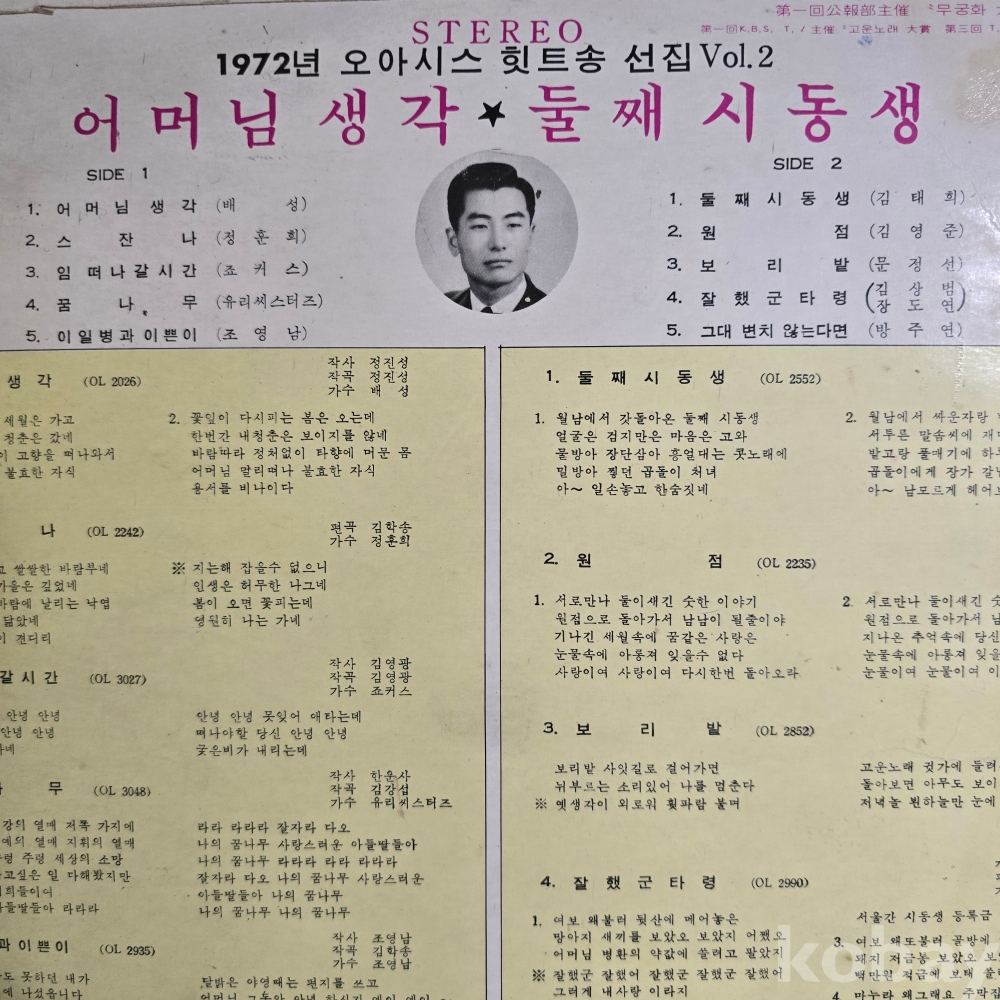 第一回公報部主催 "무궁화
第一回K.B.S. T. / 主催 "고운노래 大賞 第三回 T.
STEREO
1972년 오아시스 힛트송 선집 Vol.2
어머님 생각 ★ 둘째 시동생
SIDE 1
1. 어머님 생각 (배 성)
2. 스 잔 나 (정훈희)
3. 임 떠나갈시간 (죠커스)
4. 꿈 나 무 (유리씨스터즈)
5. 이일병과 이쁜이 (조영남)
SIDE 2
1. 둘째시동생 (김태희)
2. 원 점 (김영준)
3. 보 리 밭 (문정선)
4. 잘했군타령 (김상범 장도연)
5. 그대 변치 않는다면 (방주연)
생각 (OL 2026)
작사 정진성
작곡 정진성
가수 배 성
세월은 가고
청춘은 갔네
이 고향을 떠나와서
불효한 자식
2. 꽃잎이 다시피는 봄은 오는데
한번간 내청춘은 보이지를 않네
바람따라 정처없이 타향에 머문 몸
어머님 멀리떠나 불효한 자식
용서를 비나이다
나 (OL 2242)
편곡 김학송
가수 정훈희
고 쌀쌀한 바람부네
가을은 깊었네
바람에 날리는 낙엽
닮았네
이 견디리
※ 지는해 잡을수 없으니
인생은 허무한 나그네
봄이 오면 꽃피는데
영원히 나는 가네
갈시간 (OL 3027)
작사 김영광
작곡 김영광
가수 죠커스
안녕 안녕
안녕 안녕
가네
안녕 안녕 못잊어 애타는데
떠나야할 당신 안녕 안녕
궂은비가 내리는데
무 (OL 3048)
작사 한운사
작곡 김강섭
가수 유리씨스터즈
강의 열매 저쪽 가지에
예의 열매 지휘의 열매
주령 주령 세상의 소망
하고싶은 일 다해봤지만
너희들이여
아들딸들아 라라라
라라 라라라 잘자라 다오
나의 꿈나무 사랑스러운 아들딸들아
나의 꿈나무 라라라 라라 라라라
잘자라 다오 나의 꿈나무 사랑스러운
아들딸들아 나의 꿈나무
나의 꿈나무 나의 꿈나무
과 이쁜이 (OL 2935)
작사 조영남
작곡 김학송
가수 조영남
도 못하던 내가
에 나섰읍니다
달밝은 야영때는 편지를 쓰고
1. 둘째시동생 (OL 2552)
1. 월남에서 갓돌아온 둘째 시동생
얼굴은 검지만은 마음은 고와
물방아 장단삼아 흥얼대는 콧노래에
밀방아 찧던 곱돌이 처녀
아~ 일손놓고 한숨짓네
2. 월남에서 싸운자랑
서투른 말솜씨에 재미
밭고랑 풀매기에 하루
곱돌이에게 장가 갈
아~ 남모르게 헤어
2. 원 점 (OL 2235)
1. 서로만나 둘이새긴 숫한 이야기
원점으로 돌아가서 남남이 될줄이야
기나긴 세월속에 꿈같은 사랑은
눈물속에 아롱져 잊을수 없다
사랑이여 사랑이여 다시한번 돌아오라
2. 서로만나 둘이새긴 숫
원점으로 돌아가서 남
지나온 추억속에 당신
눈물속에 아롱져 잊을
눈물이여 눈물이여 이
3. 보 리 밭 (OL 2852)
보리밭 사잇길로 걸어가면
뉘부르는 소리있어 나를 멈춘다
※ 옛생각이 외로워 휫파람 불며
고운노래 귓가에 들려
돌아보면 아무도 보이
저녁놀 뷘하늘만 눈에
4. 잘했군타령 (OL 2990)
1. 여보 왜불러 뒷산에 메어놓은
망아지 새끼를 보았오 보았지 어쨌오
어머님 병환의 약값에 쓸려고 팔았지
※ 잘했군 잘했어 잘했군 잘했군 잘했어
그러게 내사랑 이라지
서울간 시동생 등록금
3. 여보 왜또불러 골방에
돼지 저금통 보았오 보
백만원 저금에 보태 쓸
4. 마누라 왜그래요 주막집